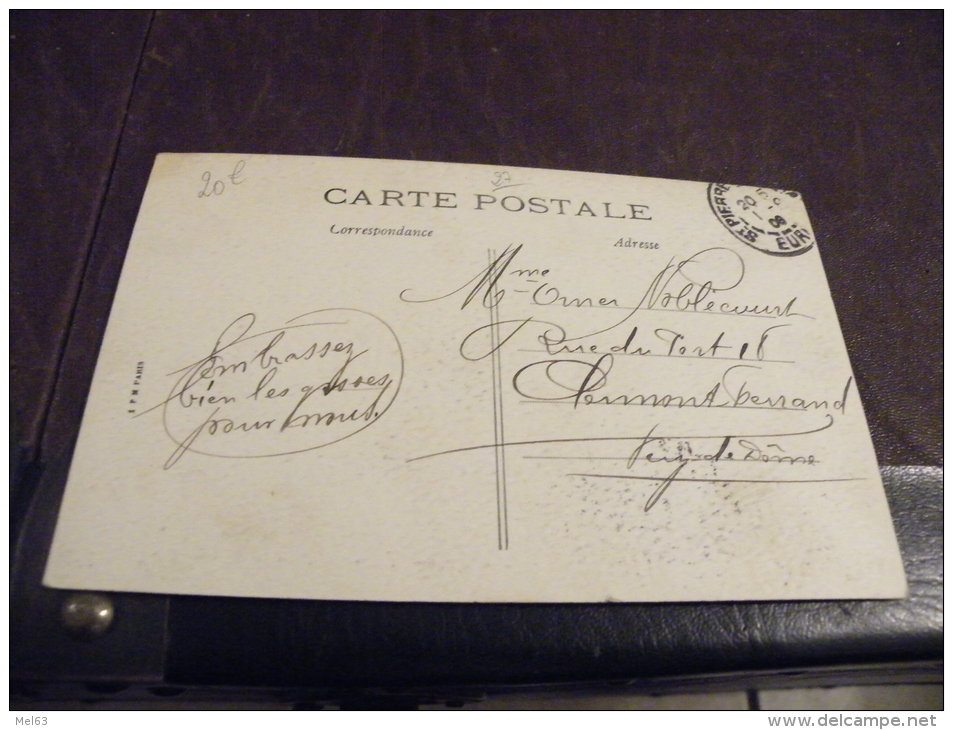 20 €
27
CARTE POSTALE
Correspondance
Adresse
ST PIERRE
20 - 8
EUR
Mme Omer Noblécourt
Rue du Port 18
Clermont Ferrand
Puy-de Dôme
Embrassez
bien les gosses
pour nous.
I P M PARIS
Mel63
www.delcampe.net